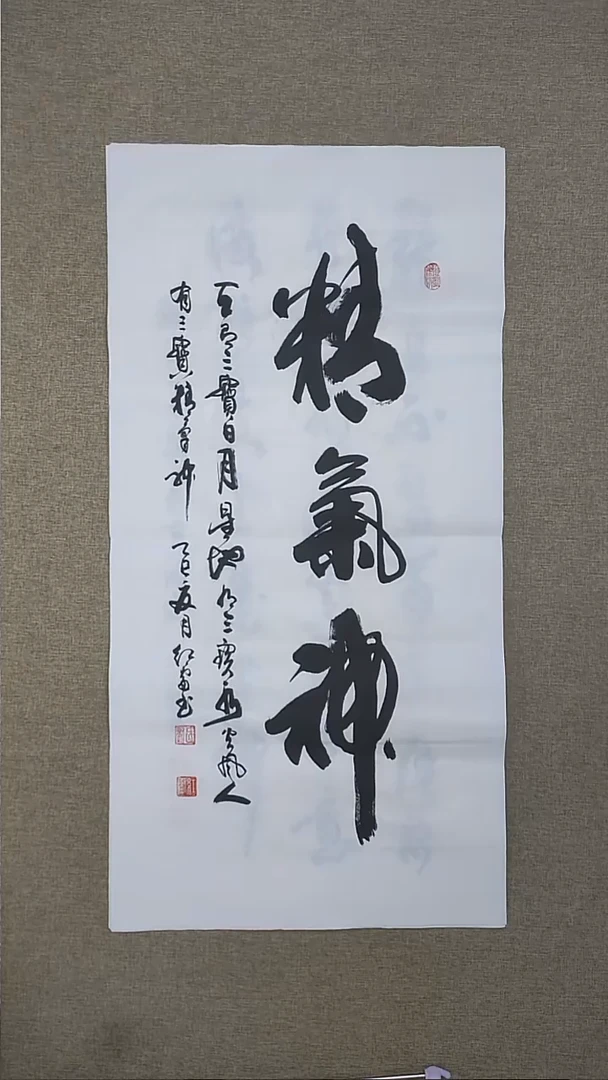 精氣神
天有三寶日月星地有三寶水火風人
有三寶精氣神 乙巳夏月 红富书